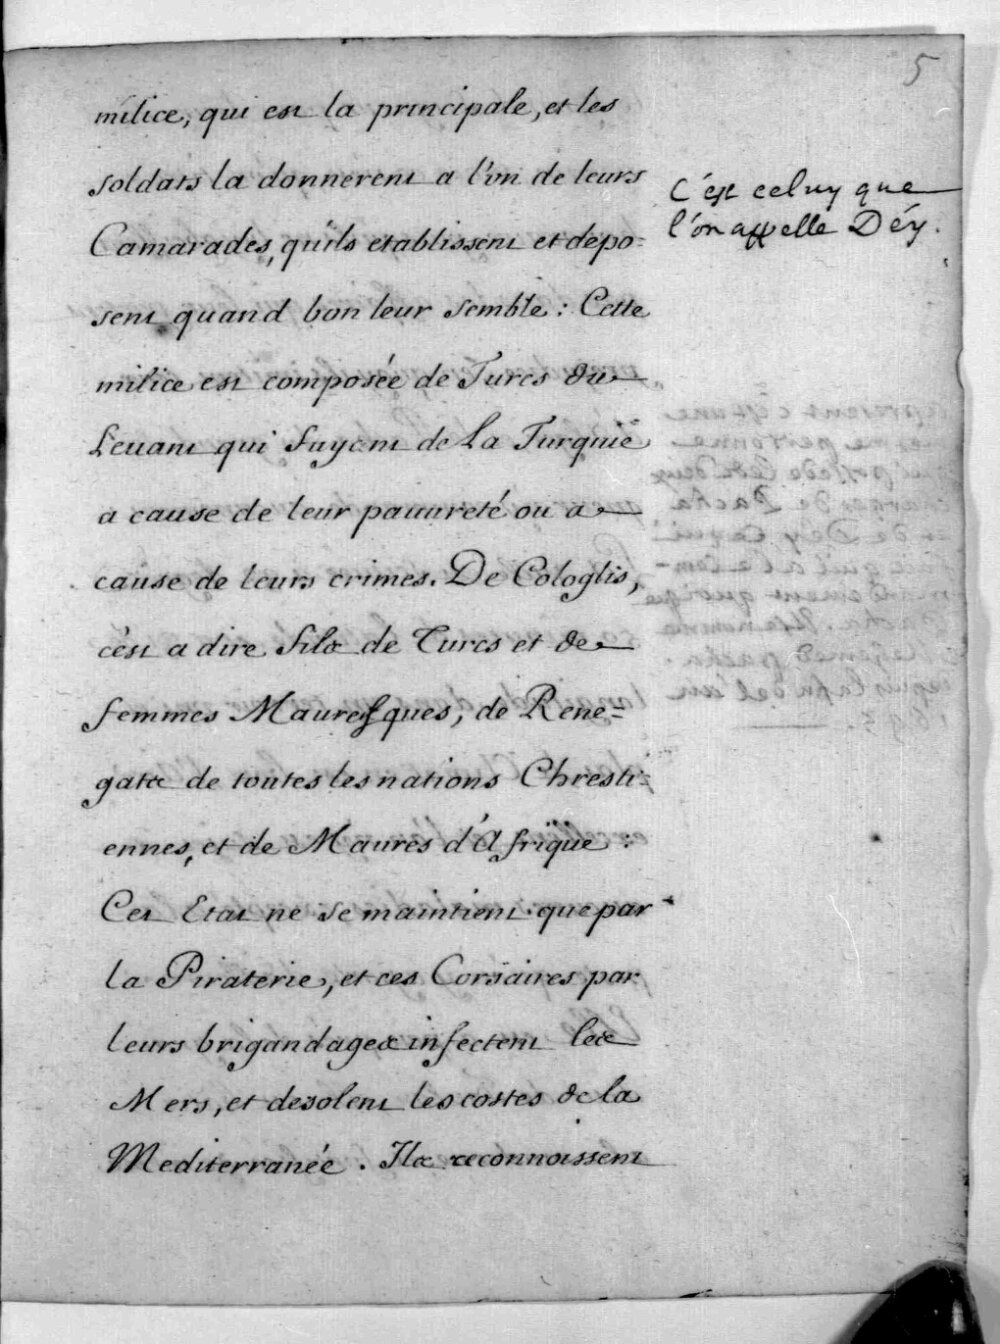 5
milice, qui est la principale, et les
soldats la donnerent a l'un de leurs
Camarades, qu'ils etablissent et depo=
sent quand bon leur semble : Cette
milice est composée de Turcs du
Levant qui fuyent de la Turquie
a cause de leur pauureté ou a
cause de leurs crimes. De Cologlis,
c'est a dire fils de Turcs et de
femmes Mauresques, de Rene=
gats de toutes les nations Chresti=
ennes, et de Maures d'Afrique :
Cet Etat ne se maintient que par
la Piraterie, et ces Corsaires par
leurs brigandages infectent les
Mers, et desolent les costes de la
Mediterranée. Ils reconnoissent
C'est celuy que
l'on appelle Déy.